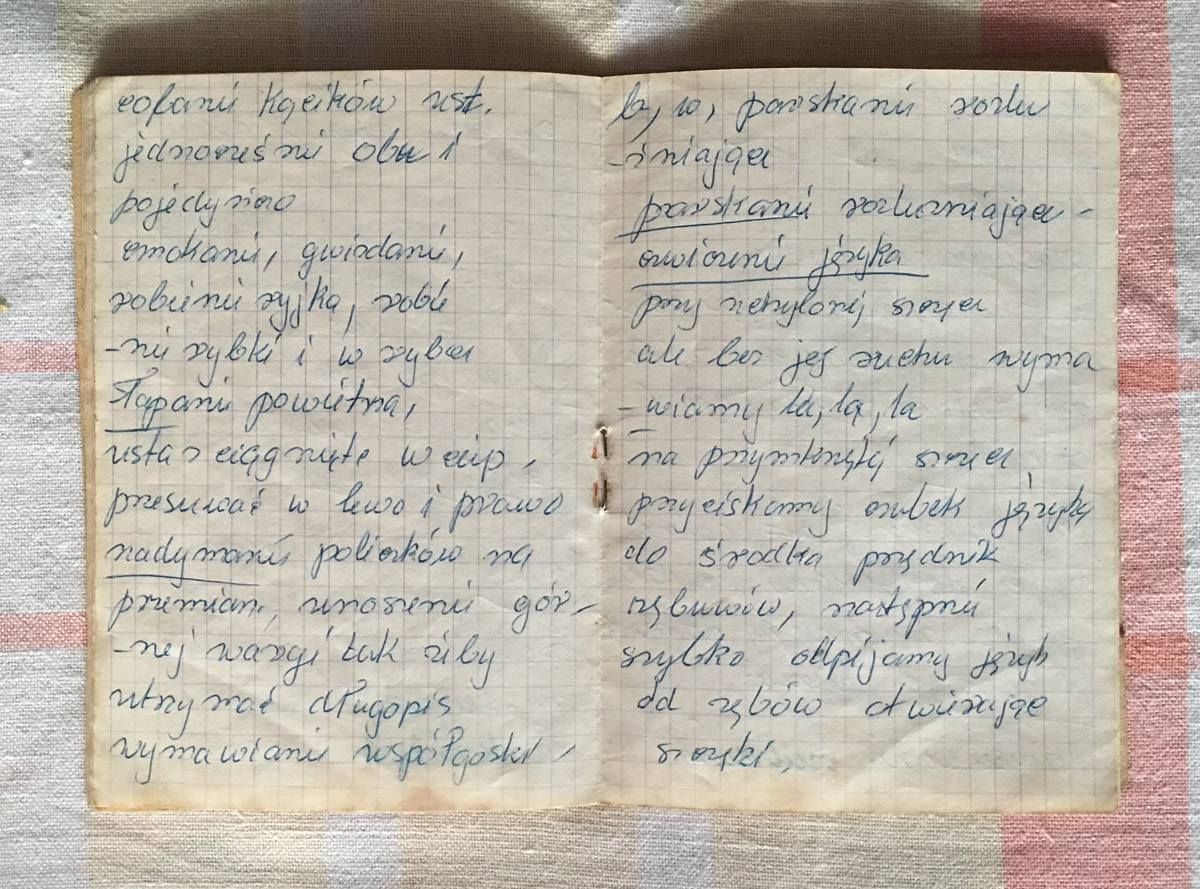 cofanie kącików ust.
jednocześnie obu i
pojedynczo
cmokanie, gwizdanie,
robienie ryjka, robie
-nie rybki i w rybce
łapanie powietrza,
usta ściągnięte w ciup,
przesuwać w lewo i prawo
nadymanie policzków na
przemian, unoszenie gór-
-nej wargi tak żeby
utrzymać długopis
wymawianie współgłoski,
b, w, parskanie rozlu
-źniające
parskanie rozluźniające -
ćwiczenie języka
przy uchylonej szczęce
ale bez jej ruchu wyma
-wiamy la, la, la
na przymkniętej szczęce
przyciskamy czubek języka
do środka przednich
zębów, następnie
szybko odbijamy język
od zębów otwierając
szczęki,